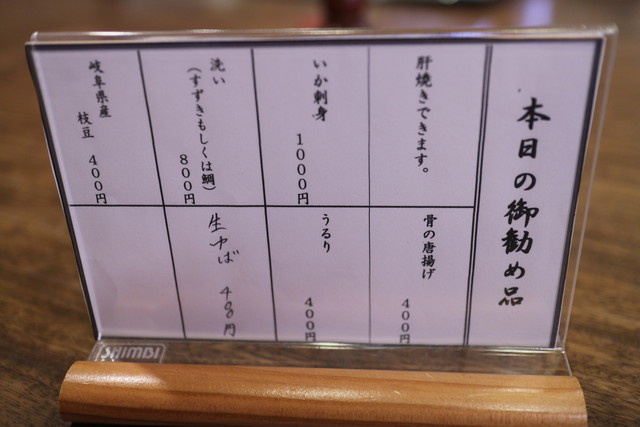 本日の御勧め品
肝焼きできます。
いか刺身
1000円
洗い
(すずきもしくは鯛)
800円
岐阜県産
枝豆
400円
骨の唐揚げ
400円
うるり
400円
生ゆば
480円
SHIMBI